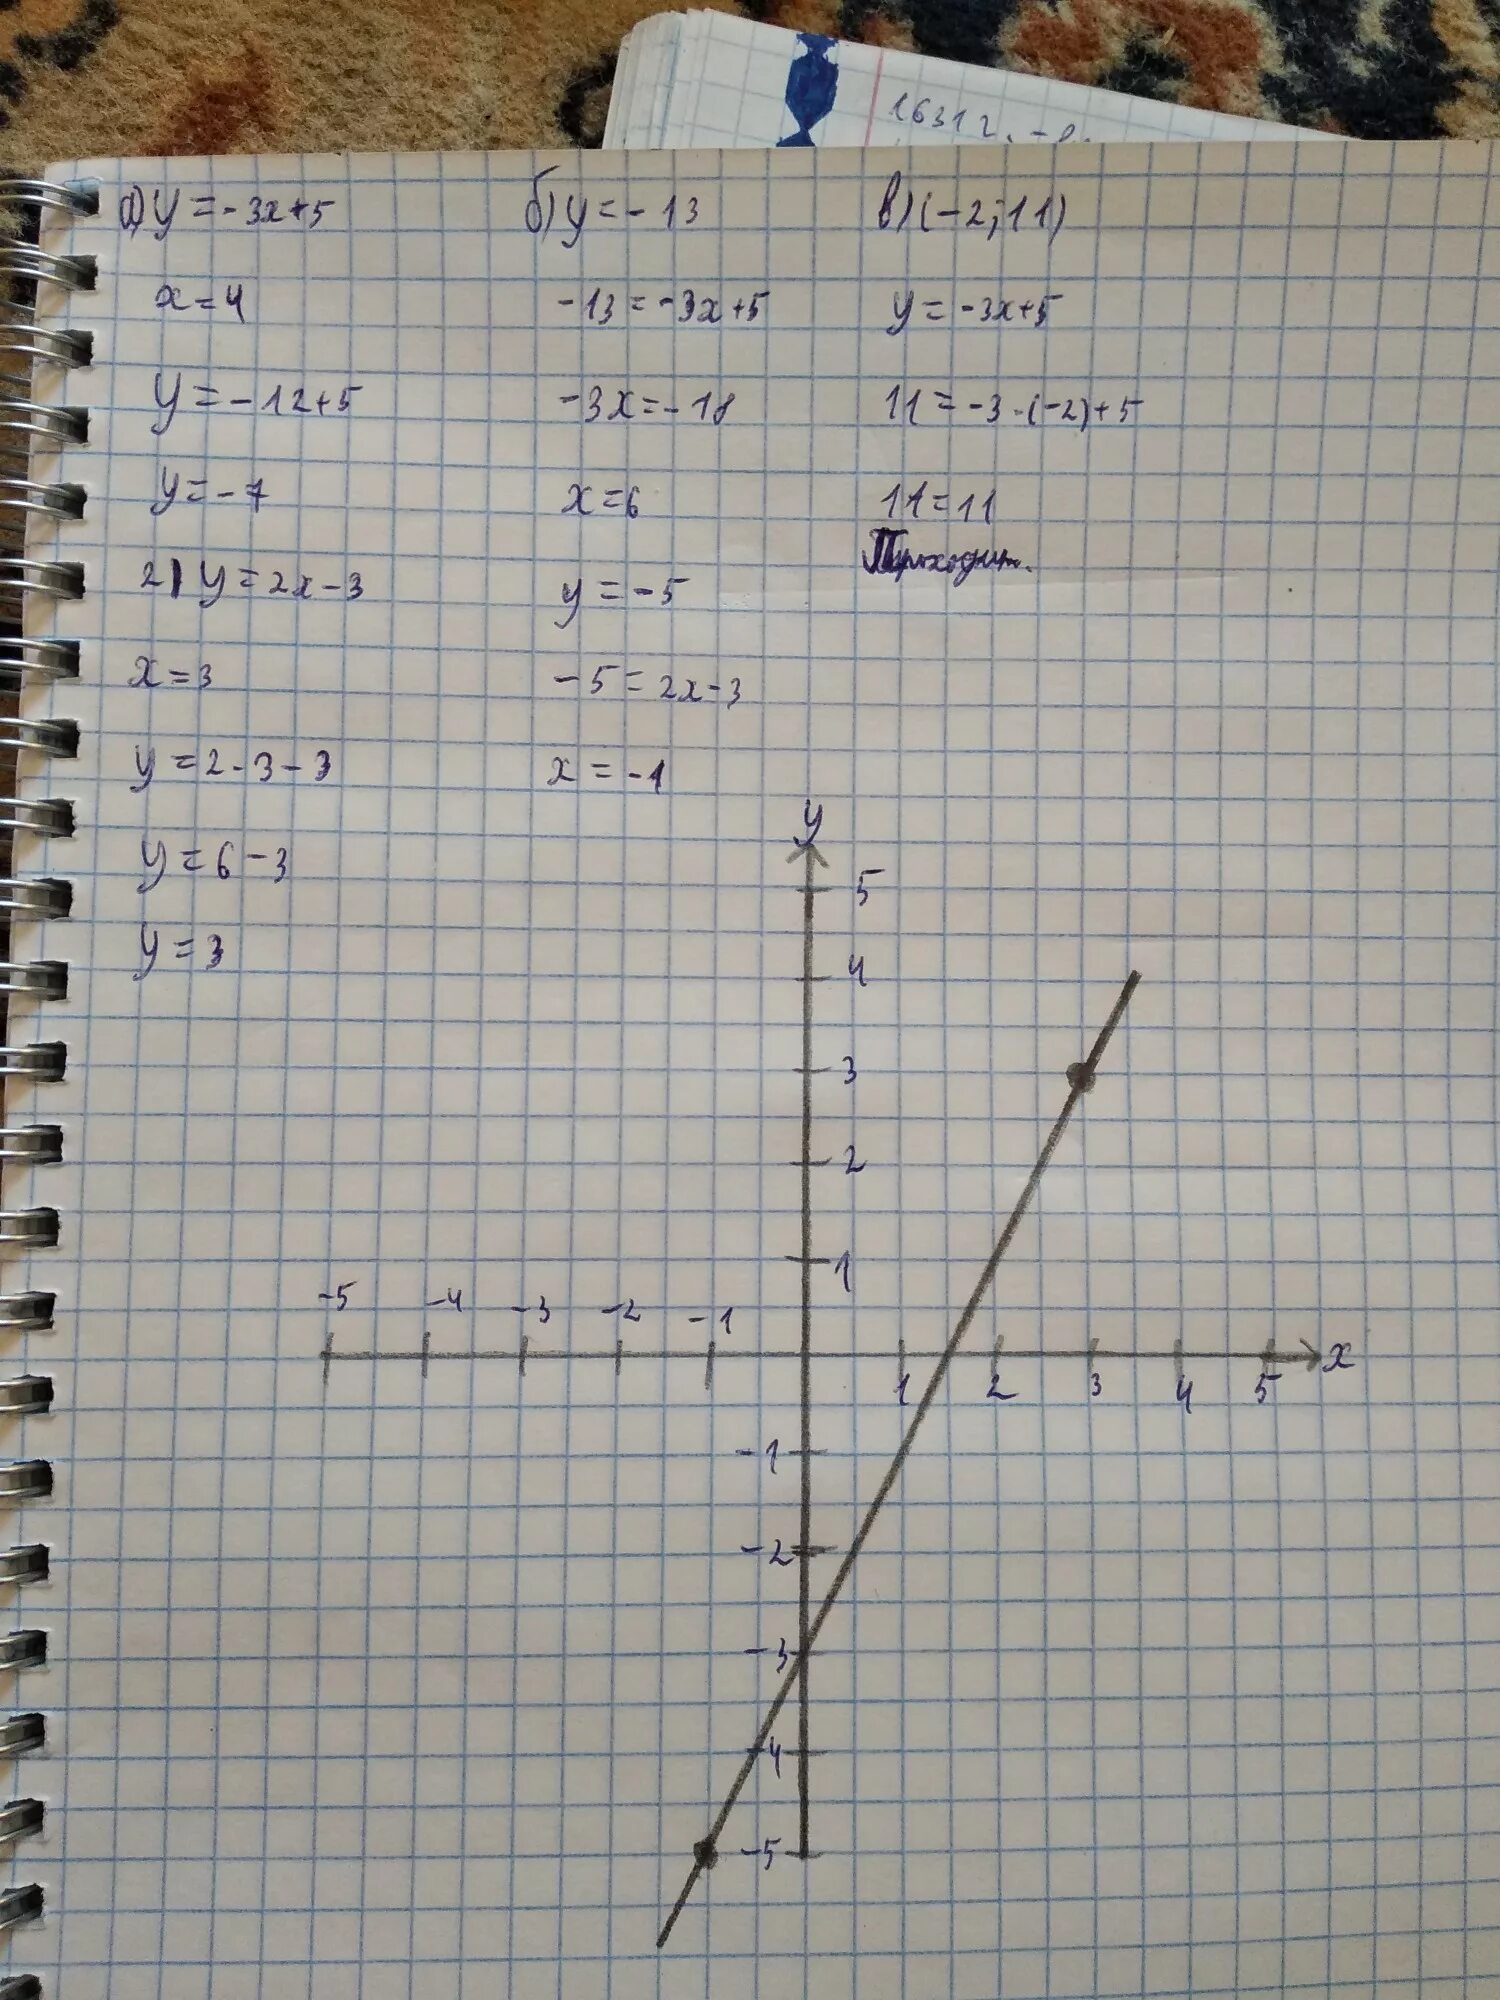 16312.
а) y = -3x+5
x = 4
y = -12+5
y = -7
б) y = -13
-13 = -3x+5
-3x = -18
x = 6
в) (-2; 11)
y = -3x+5
11 = -3·(-2)+5
11 = 11
Проходит.
2) y = 2x-3
x = 3
y = 2·3-3
y = 6-3
y = 3
y = -5
-5 = 2x-3
x = -1
y
5
4
3
2
1
-5 -4 -3 -2 -1
1 2 3 4 5 x
-1
-2
-3
-4
-5